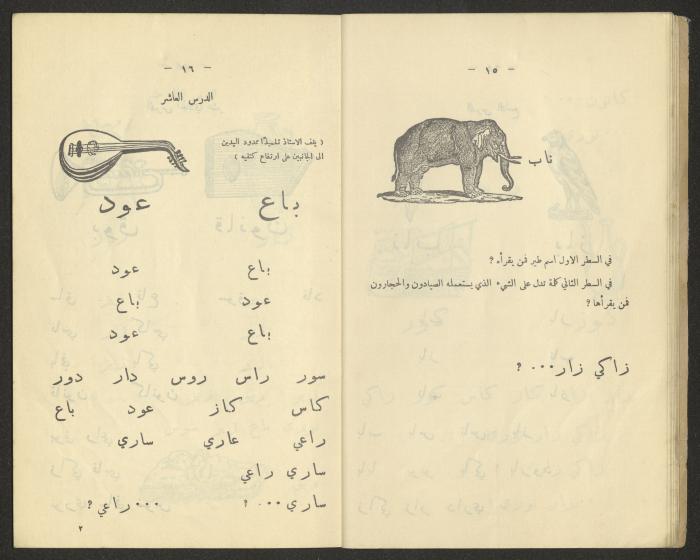 - ١٥ -
ناب
في السطر الاول اسم طير فمن يقرأه ؟
في السطر الثاني كلمة تدل على الشيء الذي يستعمله الصيادون والحجارون
فمن يقرأها ؟
زاكي زار... ؟
- ١٦ -
الدرس العاشر
( يقف الاستاذ تلميذًا ممدود اليدين
الى الجانبين على ارتفاع كتفيه )
باع عود
باع عود
عود باع
باع عود
سور راس روس دار دور
كاس كاز عود باع
راعي عاري ساري
ساري راعي
ساري... ؟ ...راعي ؟
٢